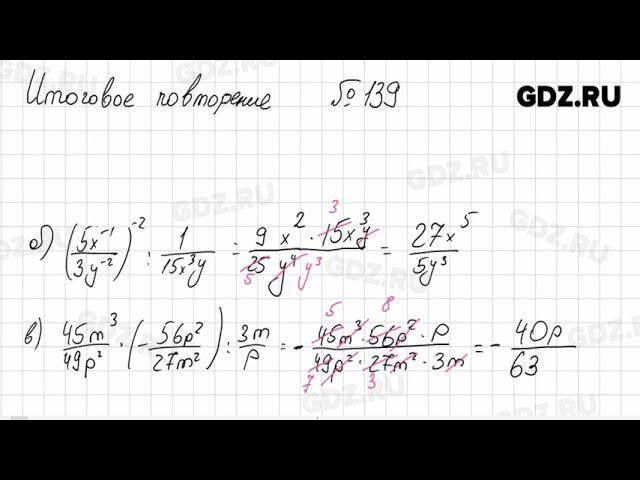 Итоговое повторение № 139 GDZ.RU
б) (5x⁻¹/3y⁻²)⁻² : 1/15x³y = 9x² · 15x³y/25y⁴ = 27x⁵/5y³
3
5 y³
в) 45m³/49p² · (−56p²/27m²) : 3m/p = − 45m³ · 56p² · p/49p² · 27m² · 3m = − 40p/63
5 8
7 3